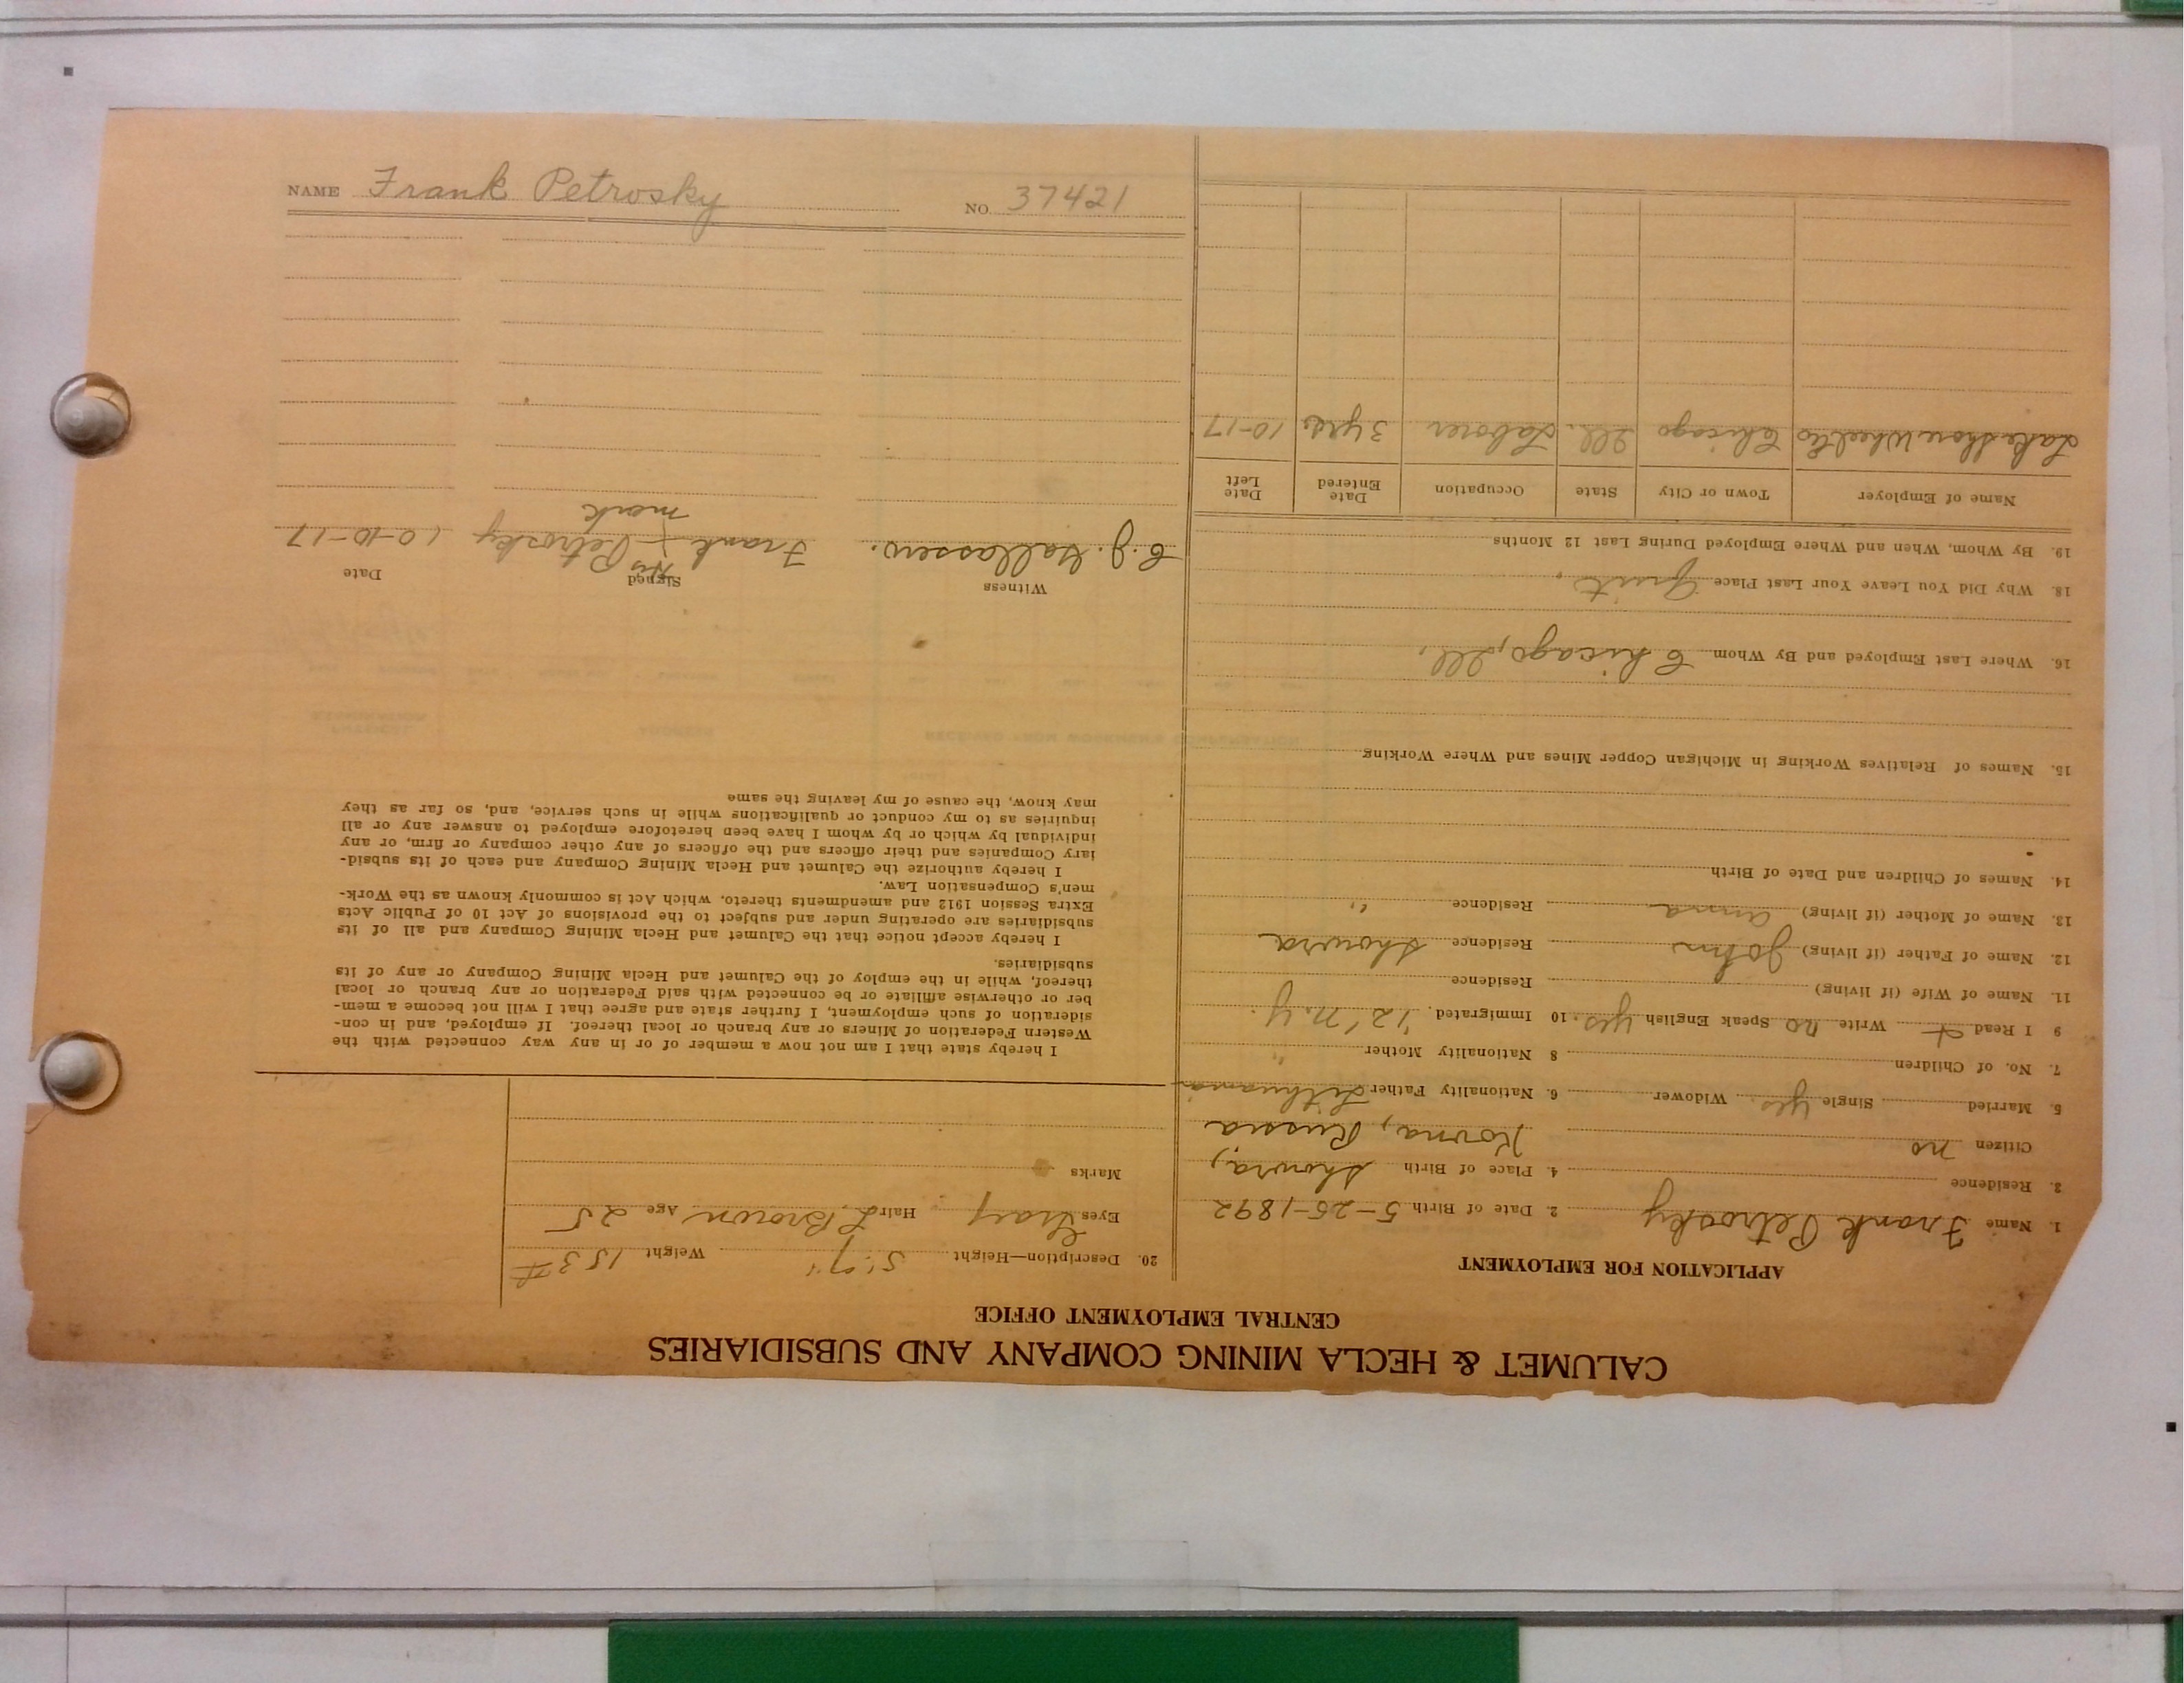 CALUMET & HECLA MINING COMPANY AND SUBSIDIARIES
CENTRAL EMPLOYMENT OFFICE
APPLICATION FOR EMPLOYMENT
1. Name Frank Petrosky 2. Date of Birth 5-25-1892
3. Residence 4. Place of Birth Showra,
Citizen no Kovna, Russia
5. Married Single yes. Widower 6. Nationality Father Lithuania
7. No. of Children 8 Nationality Mother "
9 I Read Write no Speak English yes. 10 Immigrated. '12' N.Y.
11. Name of Wife (if living) Residence
12. Name of Father (if living) John Residence Showra
13. Name of Mother (if living) Anna Residence "
14. Names of Children and Date of Birth
15. Names of Relatives Working in Michigan Copper Mines and Where Working
16. Where Last Employed and By Whom Chicago, Ill.
18. Why Did You Leave Your Last Place Quit.
19. By Whom, When and Where Employed During Last 12 Months
Name of Employer Town or City State Occupation Date Entered Date Left
Lake Shore Wheel Co Chicago Ill. Laborer 3 yrs. 10-17
20. Description—Height 5'7" Weight 153#
Eyes Gray Hair L. Brown Age 25
Marks
I hereby state that I am not now a member of or in any way connected with the
Western Federation of Miners or any branch or local thereof. If employed, and in con-
sideration of such employment, I further state and agree that I will not become a mem-
ber or otherwise affiliate or be connected with said Federation or any branch or local
thereof, while in the employ of the Calumet and Hecla Mining Company or any of its
subsidiaries.
I hereby accept notice that the Calumet and Hecla Mining Company and all of its
subsidiaries are operating under and subject to the provisions of Act 10 of Public Acts
Extra Session 1912 and amendments thereto, which Act is commonly known as the Work-
men's Compensation Law.
I hereby authorize the Calumet and Hecla Mining Company and each of its subsid-
iary Companies and their officers and the officers of any other company or firm, or any
individual by which or by whom I have been heretofore employed to answer any or all
inquiries as to my conduct or qualifications while in such service, and, so far as they
may know, the cause of my leaving the same
Witness Signed Date
His
Frank + Petrosky 10-10-17
mark
NAME Frank Petrosky NO. 37421